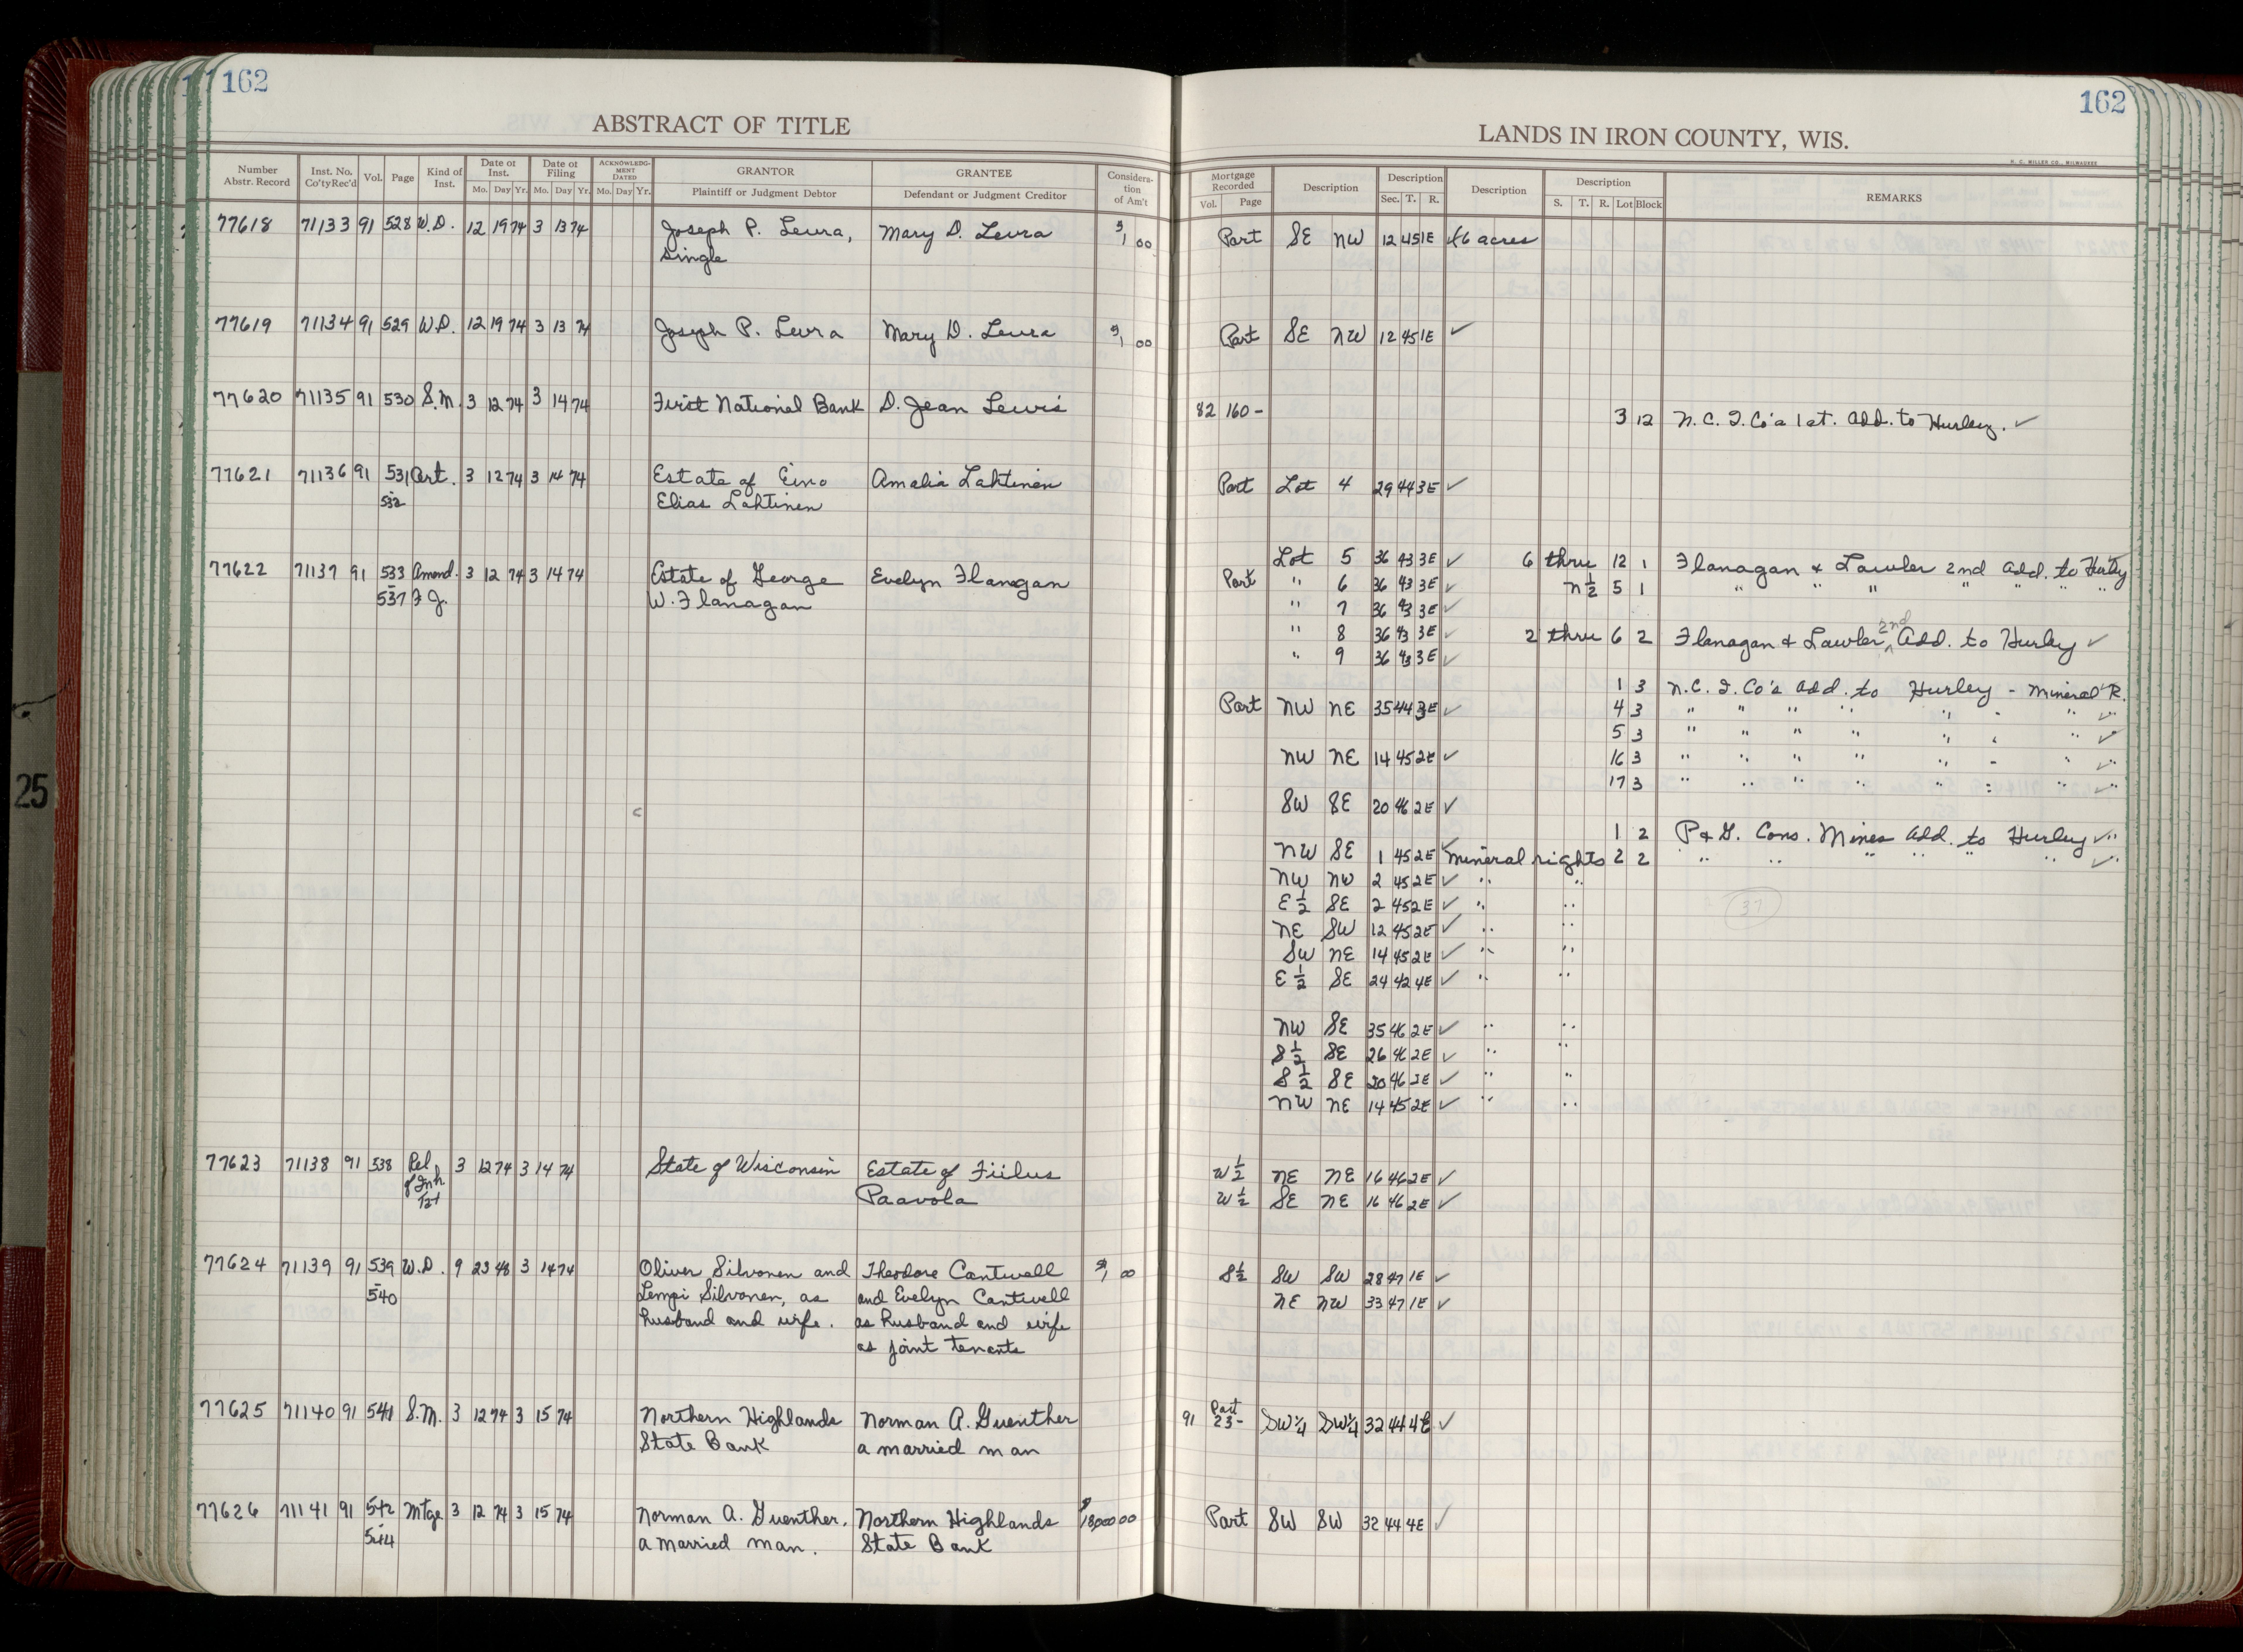 162
162
ABSTRACT OF TITLE
LANDS IN IRON COUNTY, WIS.
H. C. MILLER CO., MILWAUKEE
Number Abstr. Record Inst. No. Co'ty Rec'd Vol. Page Kind of Inst. Date of Inst. Mo. Day Yr. Date of Filing Mo. Day Yr. ACKNOWLEDGMENT DATED Mo. Day Yr. GRANTOR Plaintiff or Judgment Debtor GRANTEE Defendant or Judgment Creditor Consideration of Am't
Mortgage Recorded Vol. Page Description Description Sec. T. R. Description Description S. T. R. Lot Block REMARKS
77618 71133 91 528 W.D. 12 19 74 3 13 74 Joseph P. Leura, Mary D. Leura $1 00 Part SE NW 12 45 1E 46 acres
Single
77619 71134 91 529 W.D. 12 19 74 3 13 74 Joseph P. Leura Mary D. Leura $1 00 Part SE NW 12 45 1E ✓
77620 71135 91 530 S.M. 3 12 74 3 14 74 First National Bank D. Jean Lewis 82 160- 3 12 N.C.I. Co's 1st. Add. to Hurley. ✓
77621 71136 91 531 Cert. 3 12 74 3 14 74 Estate of Eino Amalia Lahtinen Part Lot 4 29 44 3E ✓
532 Elias Lahtinen
77622 71137 91 533 Amend. 3 12 74 3 14 74 Estate of George Evelyn Flanagan
- 537 F.J. W. Flanagan
Lot 5 36 43 3E ✓ 6 thru 12 1 Flanagan & Lawler 2nd Add. to Hurley
Part " 6 36 43 3E ✓ N½ 5 1 " " " " " "
" 7 36 43 3E ✓
" 8 36 43 3E ✓ 2 thru 6 2 Flanagan & Lawler 2nd Add. to Hurley ✓
" 9 36 43 3E ✓
1 3 N.C.I. Co's Add. to Hurley - Mineral R.
Part NW NE 35 44 3E ✓ 4 3 " " " " " " " ✓
5 3 " " " " " " " ✓
NW NE 14 45 2E ✓ 16 3 " " " " " - " ✓
17 3 " " " " " " " ✓
SW SE 20 46 2E ✓
1 2 P & G. Cons. Mines Add. to Hurley ✓
NW SE 1 45 2E ✓ Mineral rights 2 2 " " " " " " ✓
NW NW 2 45 2E ✓ " "
E½ SE 2 45 2E ✓ " "
37
NE SW 12 45 2E ✓ " "
SW NE 14 45 2E ✓ " "
E½ SE 24 42 4E ✓ " "
NW SE 35 46 2E ✓ " "
S½ SE 26 46 2E ✓ " "
S½ SE 20 46 2E ✓ " "
NW NE 14 45 2E ✓ " "
77623 71138 91 538 Rel. of Inh Tax 3 12 74 3 14 74 State of Wisconsin Estate of Fiilus W½ NE NE 16 46 2E ✓
Paavola W½ SE NE 16 46 2E ✓
77624 71139 91 539 W.D. 9 23 48 3 14 74 Oliver Silvonen and Theodore Cantwell $1 00 S½ SW SW 28 47 1E ✓
- 540 Lempi Silvonen, as and Evelyn Cantwell NE NW 33 47 1E ✓
husband and wife. as husband and wife
as joint tenants
77625 71140 91 541 S.M. 3 12 74 3 15 74 Northern Highlands Norman A. Guenther 91 Part 23- SW¼ SW¼ 32 44 4E ✓
State Bank a married man
77626 71141 91 542 Mtge 3 12 74 3 15 74 Norman A. Guenther, Northern Highlands $18,000 00 Part SW SW 32 44 4E ✓
- 544 a married man. State Bank
25